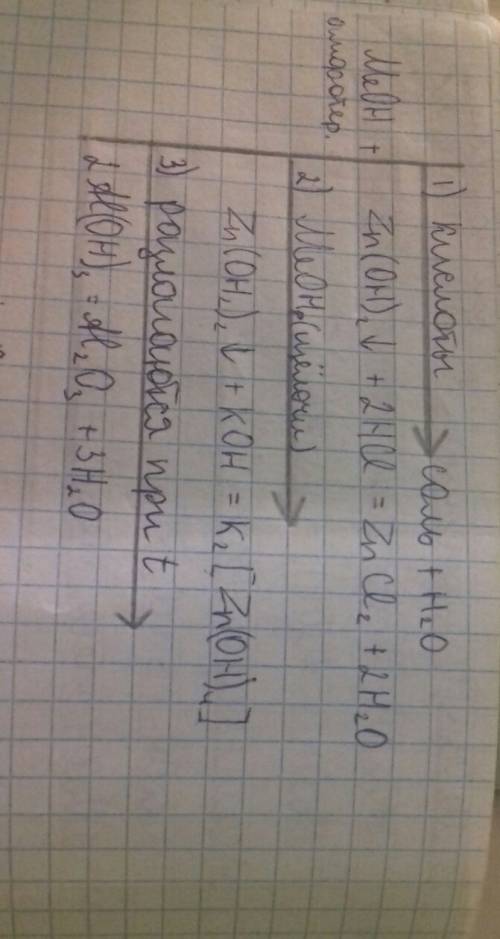 MeOH +
амфотер.
1) кислоты → соль + H₂O
Zn(OH)₂↓ + 2HCl = ZnCl₂ + 2H₂O
2) MeOH (щёлочи) →
Zn(OH₂)₂↓ + KOH = K₂[Zn(OH)₄]
3) разлагаются при t →
2Al(OH)₃ = Al₂O₃ + 3H₂O